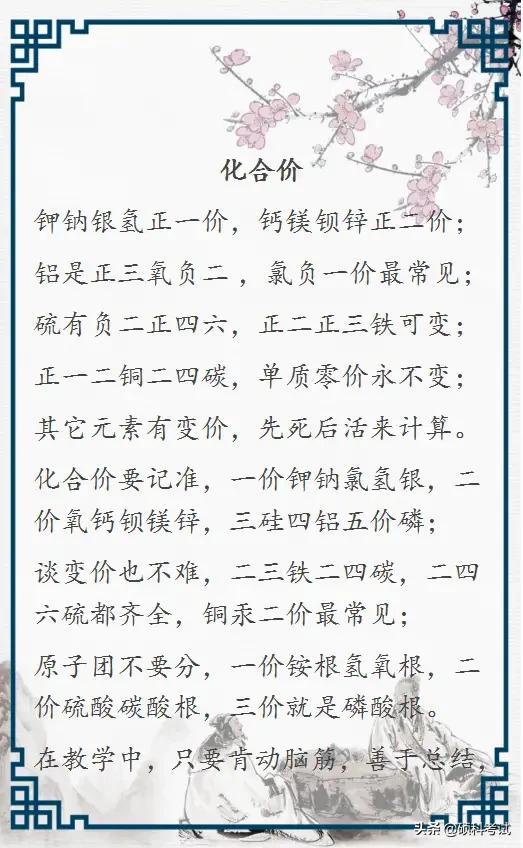 化合价
钾钠银氢正一价，钙镁钡锌正二价；
铝是正三氧负二 ，氯负一价最常见；
硫有负二正四六，正二正三铁可变；
正一二铜二四碳，单质零价永不变；
其它元素有变价，先死后活来计算。
化合价要记准，一价钾钠氯氢银，二
价氧钙钡镁锌，三硅四铝五价磷；
谈变价也不难，二三铁二四碳，二四
六硫都齐全，铜汞二价最常见；
原子团不要分，一价铵根氢氧根，二
价硫酸碳酸根，三价就是磷酸根。
在教学中，只要肯动脑筋，善于总结，
头条 @硕科考试